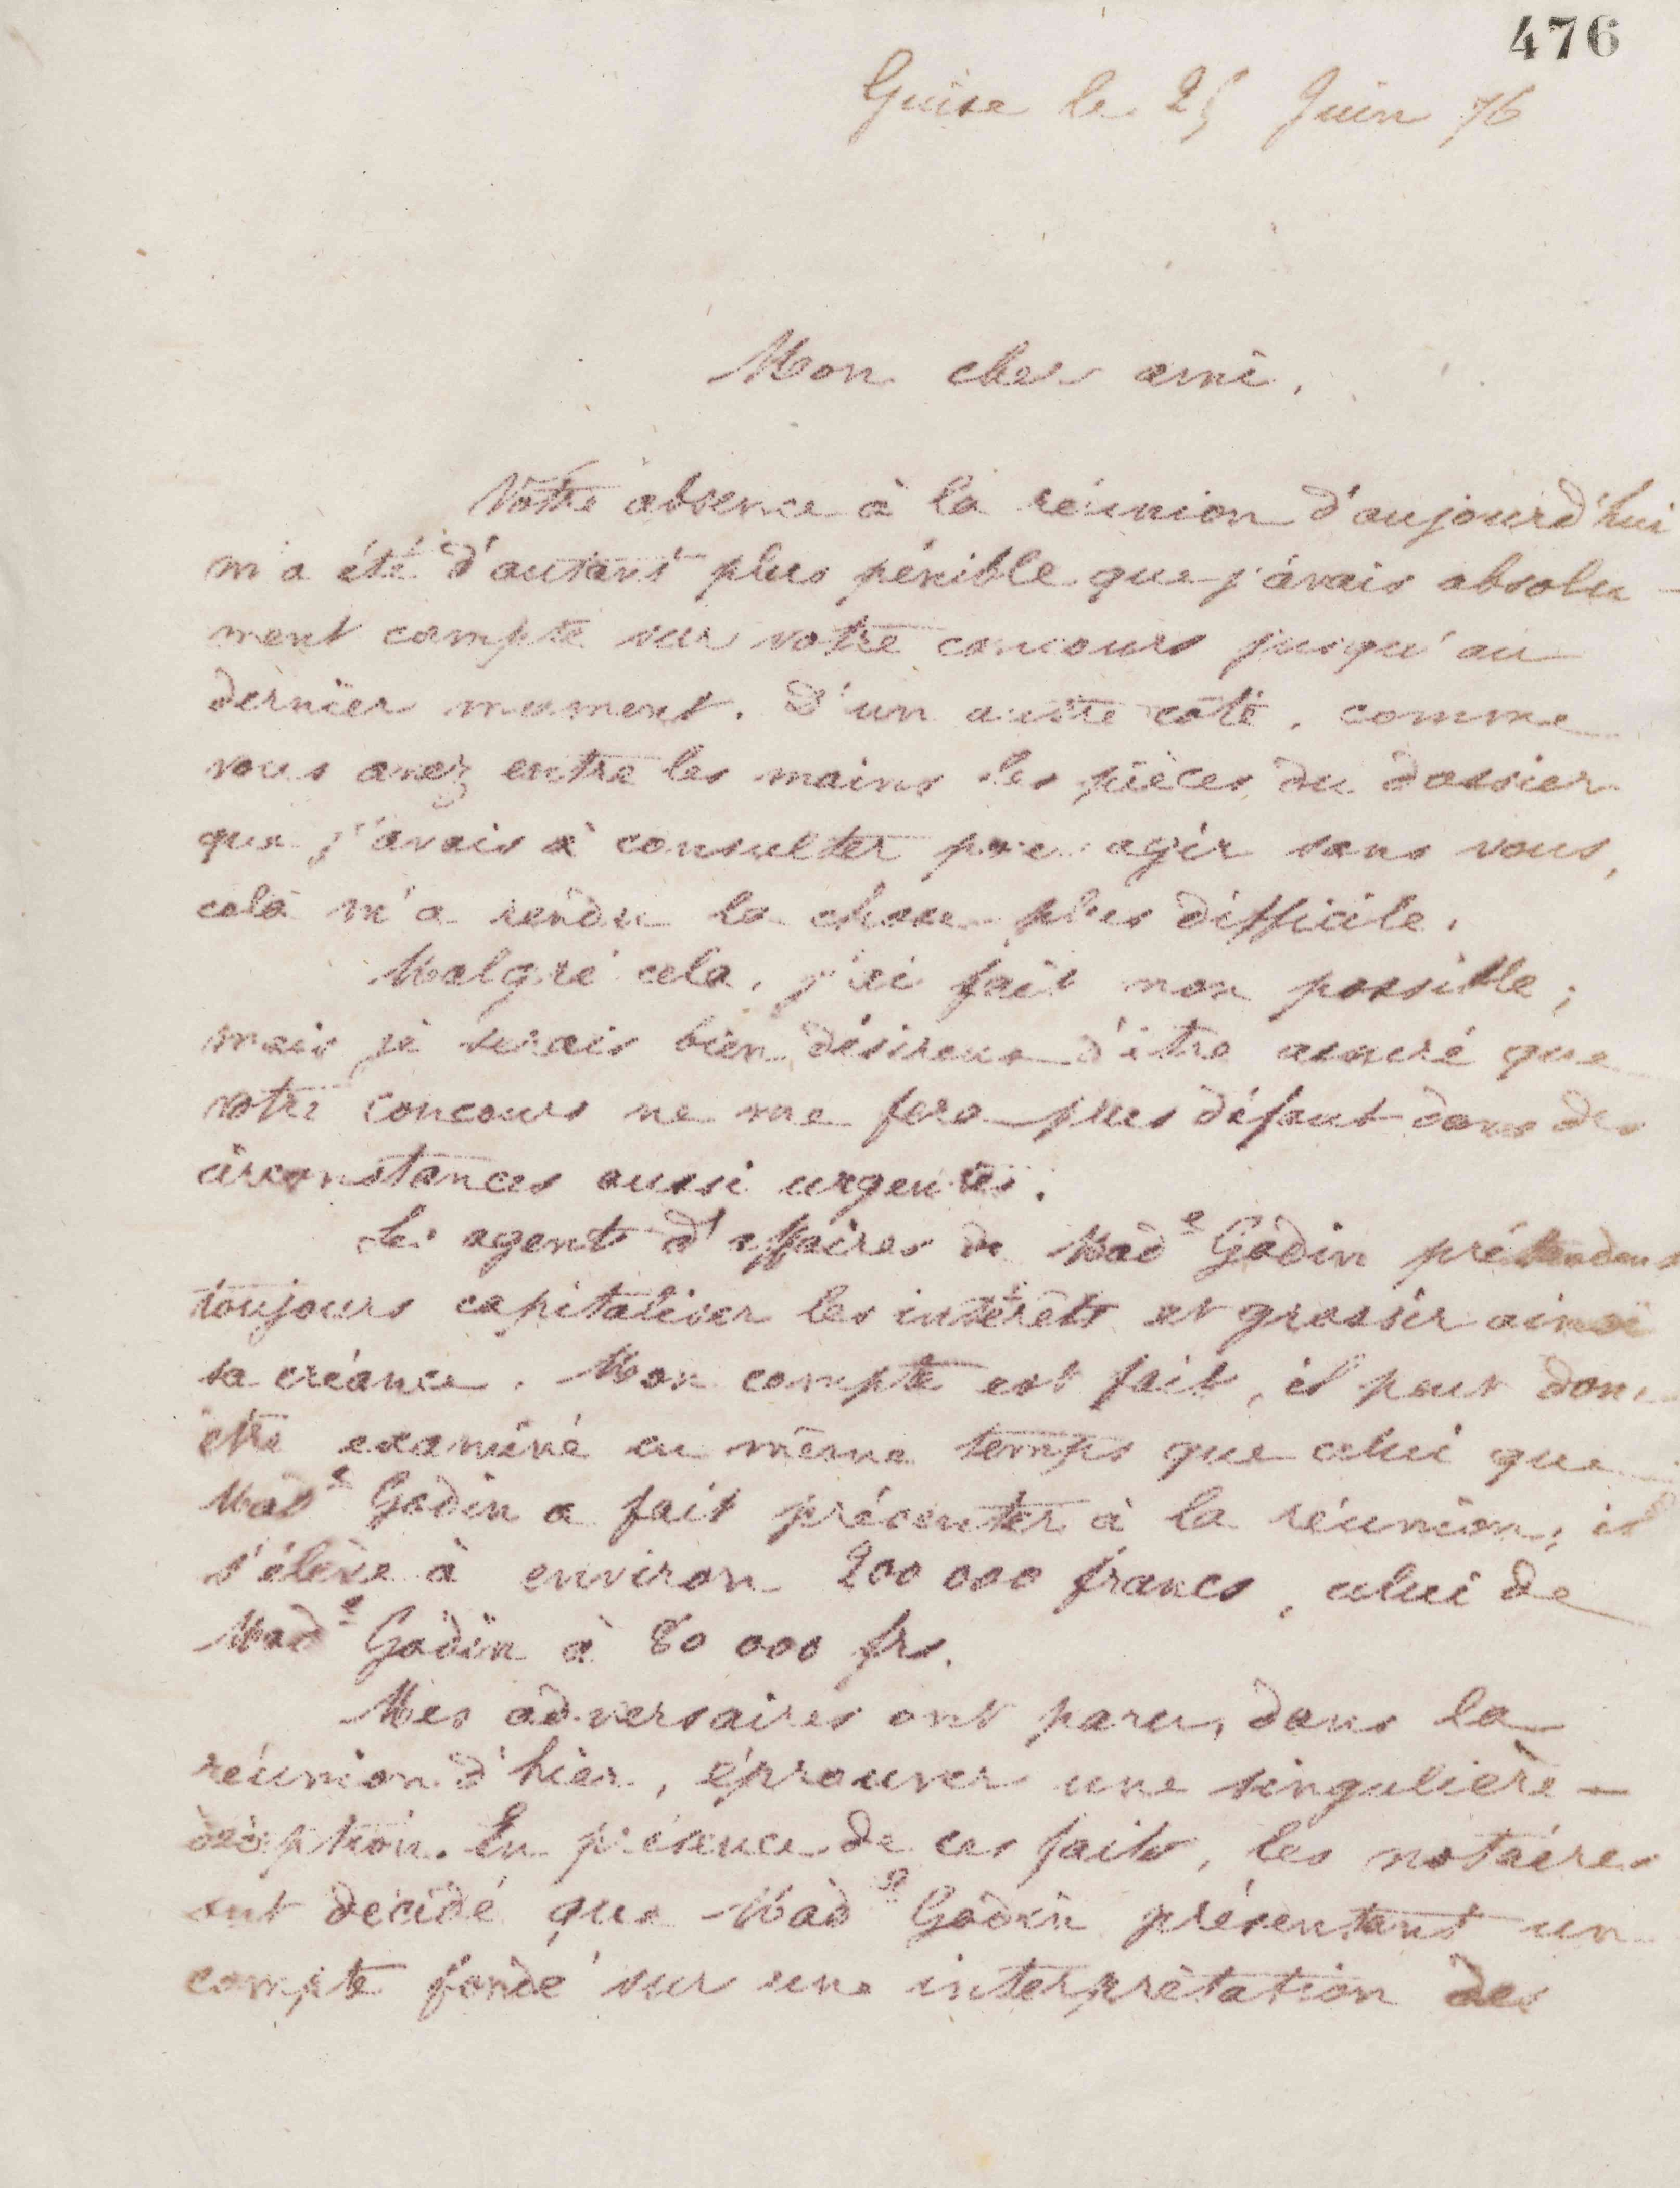 476
Guise le 25 Juin 76
Mon cher ami,
Votre absence à la réunion d'aujourd'hui
m'a été d'autant plus pénible que j'avais absolu-
ment compté sur votre concours jusqu'au
dernier moment. D'un autre côté, comme
vous avez entre les mains les pièces du dossier
que j'avais à consulter pour agir sans vous,
celà m'a rendu la chose plus difficile.
Malgré cela, j'ai fait mon possible;
mais je serais bien désireux d'être assuré que
votre concours ne me fera plus défaut dans des
circonstances aussi urgentes.
Les agents d'affaires de Made Godin prétendent
toujours capitaliser les intérêts et grossir ainsi
sa créance. Mon compte est fait, il peut donc
être examiné en même temps que celui que
Made Godin a fait présenter à la réunion, il
s'élève à environ 200 000 francs, celui de
Made Godin à 80 000 frs.
Mes adversaires ont paru, dans la
réunion d'hier, éprouver une singulière
déception. En présence de ces faits, les notaires
ont décidé que Made Godin présentant un
compte fondé sur une interprétation des